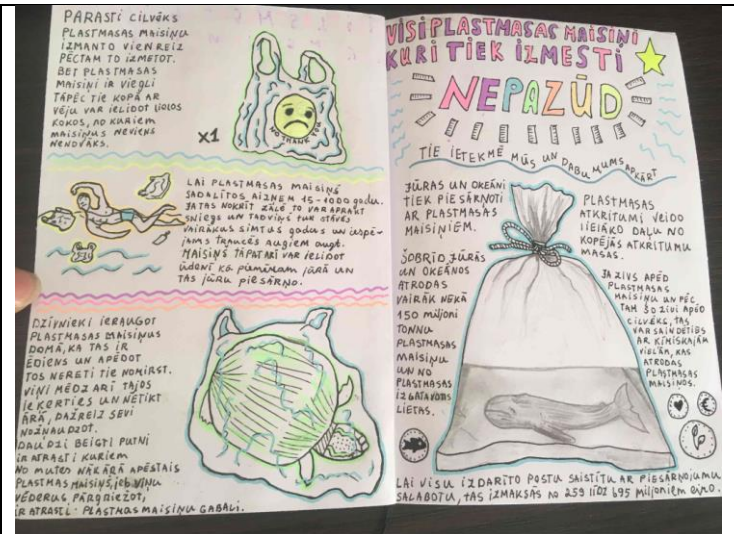 PARASTI CILVĒKS
PLASTMASAS MAISIŅU
IZMANTO VIENREIZ
PĒCTAM TO IZMETOT.
BET PLASTMASAS
MAISIŅI IR VIEGLI
TĀPĒC TIE KOPĀ AR
VĒJU VAR IELIDOT LIELOS
KOKOS, NO KURIEM
MAISIŅUS NEVIENS
NENOVĀKS.
X1
NO THANK YOU
LAI PLASTMASAS MAISIŅŠ
SADALĪTOS AIZŅEM 15-1000 gadu.
JA TAS NOKRĪT ZĀLĒ TO VAR APRAKT
SNIEGS UN TADVIŅŠ TUR STĀVĒS
VAIRĀKUS SIMTUS gadus un iespē-
jams TRAUCĒS AUGIEM AUGT.
MAISIŅŠ TĀPAT ARĪ VAR IELIDOT
ŪDENĪ KĀ PIEMĒRAM JŪRĀ UN
TAS JŪRU PIESĀRŅO.
DZĪVNIEKI IERAUGOT
PLASTMASAS MAISIŅUS
DOMĀ, KA TAS IR
ĒDIENS UN APĒDOT
TOS NERETI TIE NOMIRST.
VIŅI MĒDZ ARĪ TAJOS
IEĶERTIES UN NETIKT
ĀRĀ, DAŽREIZ SEVI
NOŽŅAUDZOT.
DAUDZI BEIGTI PUTNI
IR ATRASTI KURIEM
NO MUTES NĀK ĀRĀ APĒSTAIS
PLASTMASAS MAISIŅŠ, JEB VIŅU
VĒDERUS PĀRGRIEŽOT,
IR ATRASTI PLASTMASAS MAISIŅU GABALI.
VISI PLASTMASAS MAISIŅI
KURI TIEK IZMESTI
NEPAZŪD
TIE IETEKMĒ MŪS UN DABU MUMS APKĀRT
JŪRAS UN OKEĀNI
TIEK PIESĀRŅOTI
AR PLASTMASAS
MAISIŅIEM.
ŠOBRĪD JŪRĀS
UN OKEĀNOS
ATRODAS
VAIRĀK NEKĀ
150 miljoni
TONNU
PLASTMASAS
MAISIŅU
UN NO
PLASTMASAS
IZGATAVOTAS
LIETAS.
PLASTMASAS
ATKRITUMI VEIDO
LIELĀKO DAĻU NO
KOPĒJĀS ATKRITUMU
MASAS.
JA ZIVS APĒD
PLASTMASAS
MAISIŅU UN PĒC
TAM ŠO ZIVI APĒD
CILVĒKS, TAS
VAR SAINDĒTIES
AR ĶĪMISKAJĀM
VIELĀM, KAS
ATRODAS
PLASTMASAS
MAISIŅOS.
LAI VISU IZDARĪTO POSTU SAISTĪTU AR PIESĀRŅOJUMU
SALABOTU, TAS IZMAKSĀS NO 259 LĪDZ 695 MILJONIEM eiro.